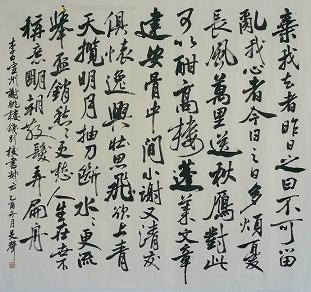 棄我去者昨日之日不可留
亂我心者今日之日多煩憂
長風萬里送秋鴈對此
可以酣高樓蓬萊文章
建安骨中間小謝又清發
俱懷逸興壯思飛欲上青
天攬明月抽刀斷水〻更流
舉盃銷愁〻更愁人生在世
稱意明朝散髮弄扁舟
李白宣州謝朓樓餞別校書叔云